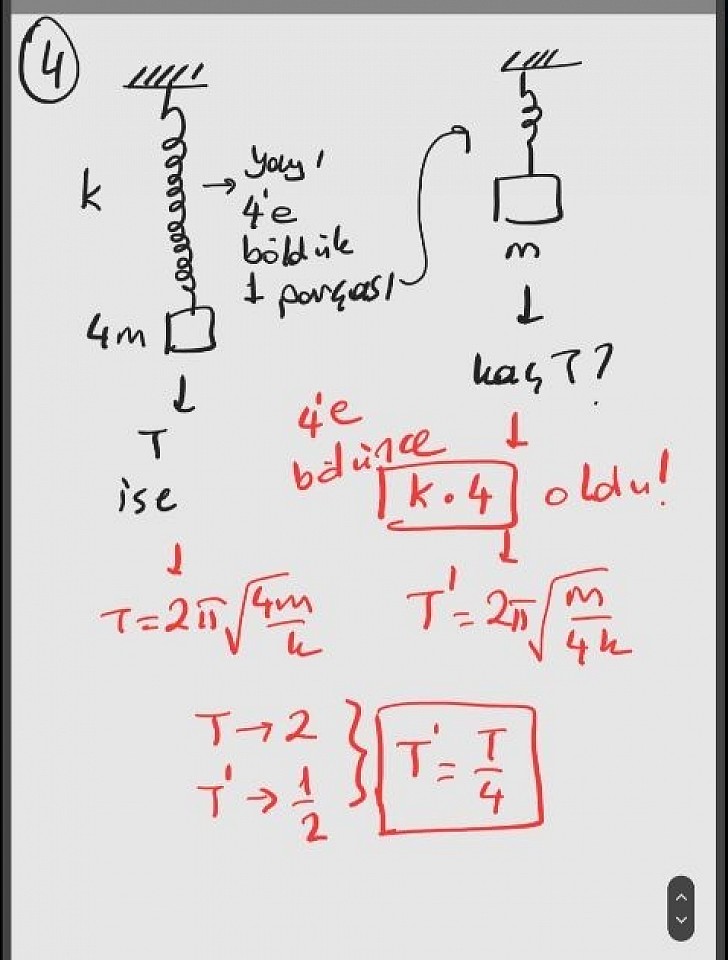 4
k
→ Yayı
4'e
böldük
1 parçası
4m
m
↓
T
ise
↓
kaç T?
↓
4'e
bölünce
k . 4 oldu!
↓
↓
T = 2π√4m/k
T' = 2π√m/4k
T → 2
T' → 1/2
} T' = T/4